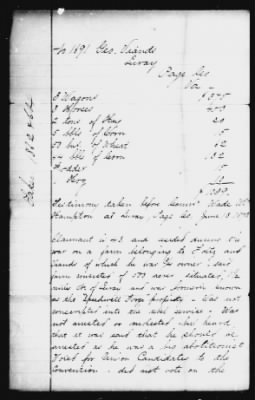 No 1691 Geo.
Luray
Page Co
Va
2 Wagons
3 Horses
2 tons of Hay 20
5 bbls of Corn 15
50 bus. of Wheat
44 bbls of Corn 132
Fodder 15
Hay
Taken 1862 & 64
Testimony taken before Comr Wade
Hampton at Luray, Page Co. June
Claimant is 43 and resided during the
war on a farm belonging to Forty and
of which he was owner. Said
farm consisted of 573 acres situated
miles of Luray and was known
as the Speedwell Forge property - Was not
conscripted into the service - Was
not arrested or molested, but heard
that it was said that he should be
arrested as he was a big abolitionist
Voted for Union Candidates to the
Convention - did not vote on the